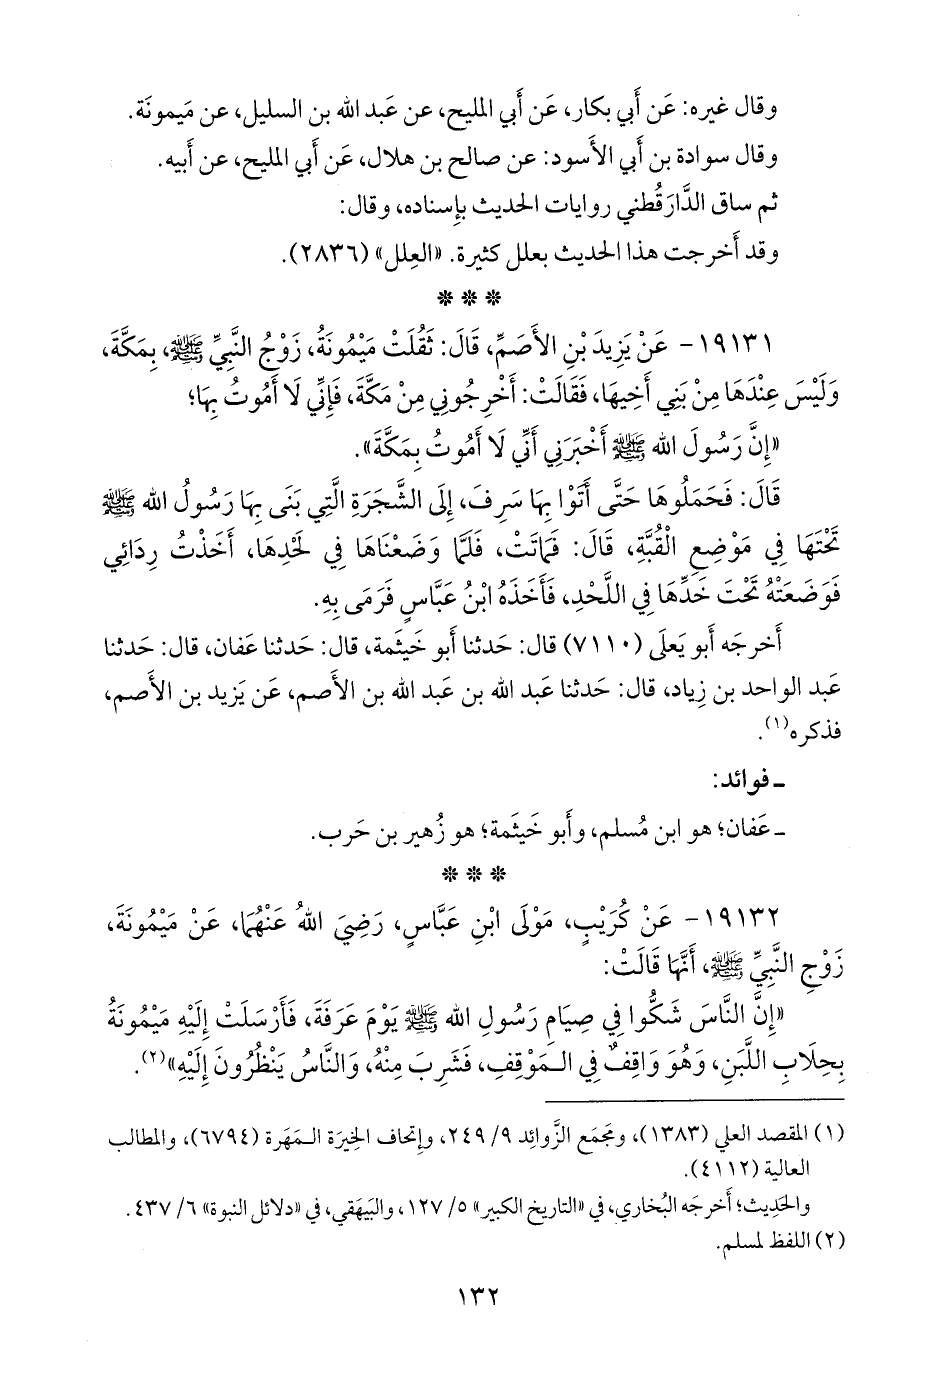 وقال غيره: عَن أَبي بكار، عَن أَبي المليح، عن عَبد الله بن السليل، عن مَيمونَة.
وقال سوادة بن أَبي الأَسود: عن صالح بن هلال، عَن أَبي المليح، عن أَبيه.
ثم ساق الدَّارَقُطني روايات الحديث بإِسناده، وقال:
وقد أَخرجت هذا الحديث بعلل كثيرة. «العِلل» (٢٨٣٦).
* * *
١٩١٣١- عَنْ يَزِيدَ بْنِ الأَصَمِّ، قَالَ: ثَقُلَتْ مَيْمُونَةُ، زَوْجُ النَّبِيِّ ﷺ، بِمَكَّةَ،
وَلَيْسَ عِنْدَهَا مِنْ بَنِي أَخِيهَا، فَقَالَتْ: أَخْرِجُونِي مِنْ مَكَّةَ، فَإِنِّي لَا أَمُوتُ بِهَا؛
«إِنَّ رَسُولَ الله ﷺ أَخْبَرَنِي أَنِّي لَا أَمُوتُ بِمَكَّةَ».
قَالَ: فَحَمَلُوهَا حَتَّى أَتَوْا بِهَا سَرِفَ، إِلَى الشَّجَرَةِ الَّتِي بَنَى بِهَا رَسُولُ الله ﷺ
تَحْتَهَا فِي مَوْضِعِ الْقُبَّةِ، قَالَ: فَمَاتَتْ، فَلَمَّا وَضَعْنَاهَا فِي لَحْدِهَا، أَخَذْتُ رِدَائِي
فَوَضَعْتُهُ تَحْتَ خَدِّهَا فِي اللَّحْدِ، فَأَخَذَهُ ابْنُ عَبَّاسٍ فَرَمَى بِهِ.
أَخرجَه أَبو يَعلَى (٧١١٠) قال: حَدثنا أَبو خَيثَمة، قال: حَدثنا عَفان، قال: حَدثنا
عَبد الواحد بن زِياد، قال: حَدثنا عَبد الله بن عَبد الله بن الأَصم، عَن يَزيد بن الأَصم،
فذكره(١).
ـ فوائد:
ـ عَفان؛ هو ابن مُسلم، وأَبو خَيثَمة؛ هو زُهير بن حَرب.
* * *
١٩١٣٢- عَنْ كُرَيْبٍ، مَوْلَى ابْنِ عَبَّاسٍ، رَضِيَ اللهُ عَنْهُمَا، عَنْ مَيْمُونَةَ،
زَوْجِ النَّبِيِّ ﷺ، أَنَّهَا قَالَتْ:
«إِنَّ النَّاسَ شَكُّوا فِي صِيَامِ رَسُولِ الله ﷺ يَوْمَ عَرَفَةَ، فَأَرْسَلَتْ إِلَيْهِ مَيْمُونَةُ
بِحِلَابِ اللَّبَنِ، وَهُوَ وَاقِفٌ فِي الـمَوْقِفِ، فَشَرِبَ مِنْهُ، وَالنَّاسُ يَنْظُرُونَ إِلَيْهِ»(٢).
(١) المقصد العلي (١٣٨٣)، ومَجمَع الزَّوائد ٩/ ٢٤٩، وإِتحاف الخِيرَة الـمَهَرة (٦٧٩٤)، والمطالب
العالية (٤١١٢).
والحَدِيث؛ أَخرجَه البُخاري، في «التاريخ الكبير» ٥/ ١٢٧، والبَيهَقي، في «دلائل النبوة» ٦/ ٤٣٧.
(٢) اللفظ لمسلم.
١٣٢